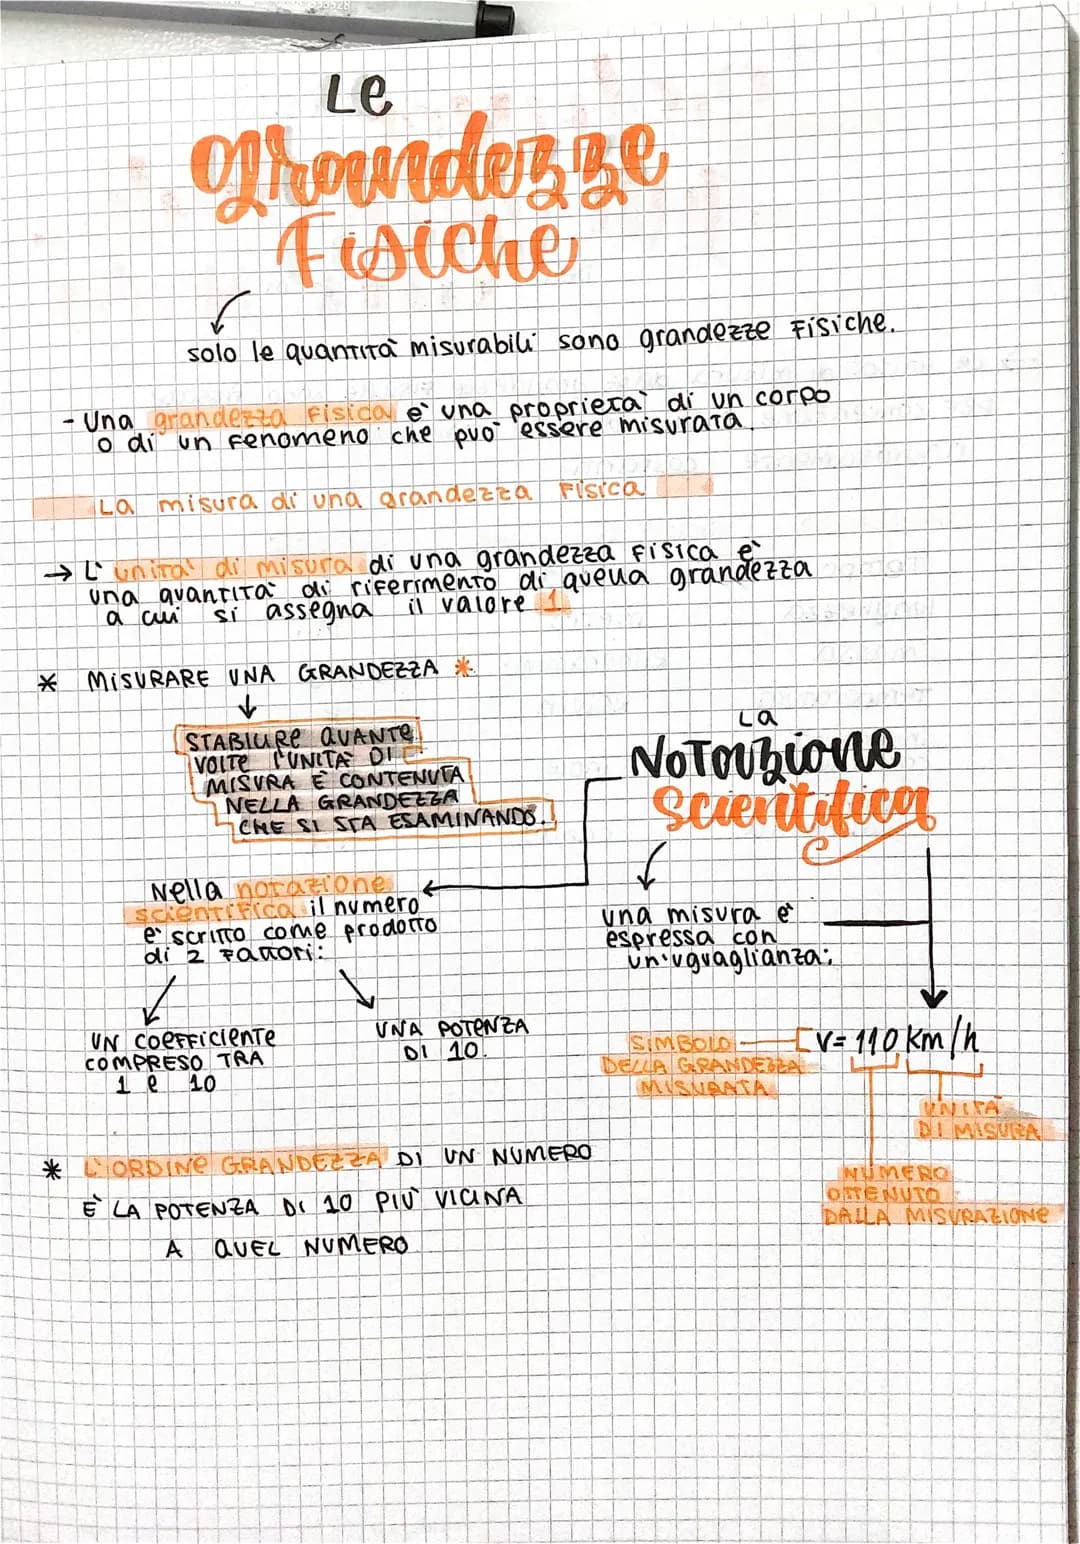 Le
grandezze
Fisiche
solo le quantità misurabili sono grandezze Fisiche.
- Una grandezza Fisica è una proprietà di un corpo
o di un fenomeno che può essere misurata.
La misura di una grandezza Fisica
→ L'unità di misura di una grandezza fisica è
una quantità di riferimento di quella grandezza
a cui si assegna il valore 1
* MISURARE UNA GRANDEZZA *
STABILIRE QUANTE
VOLTE L'UNITÀ DI
MISURA È CONTENUTA
NELLA GRANDEZZA
CHE SI STA ESAMINANDO.
La
Notazione
Scientifica
Nella notazione
scientifica il numero
è scritto come prodotto
di 2 fattori:
UN COEFFICIENTE
COMPRESO TRA
1 e 10
UNA POTENZA
DI 10.
una misura è
espressa con
un'uguaglianza:
v= 110 km/h
SIMBOLO
DELLA GRANDEZZA
MISURATA
UNITÀ
DI MISURA
NUMERO
OTTENUTO
DALLA MISURAZIONE
* L'ORDINE GRANDEZZA DI UN NUMERO
È LA POTENZA DI 10 PIÙ VICINA
A QUEL NUMERO